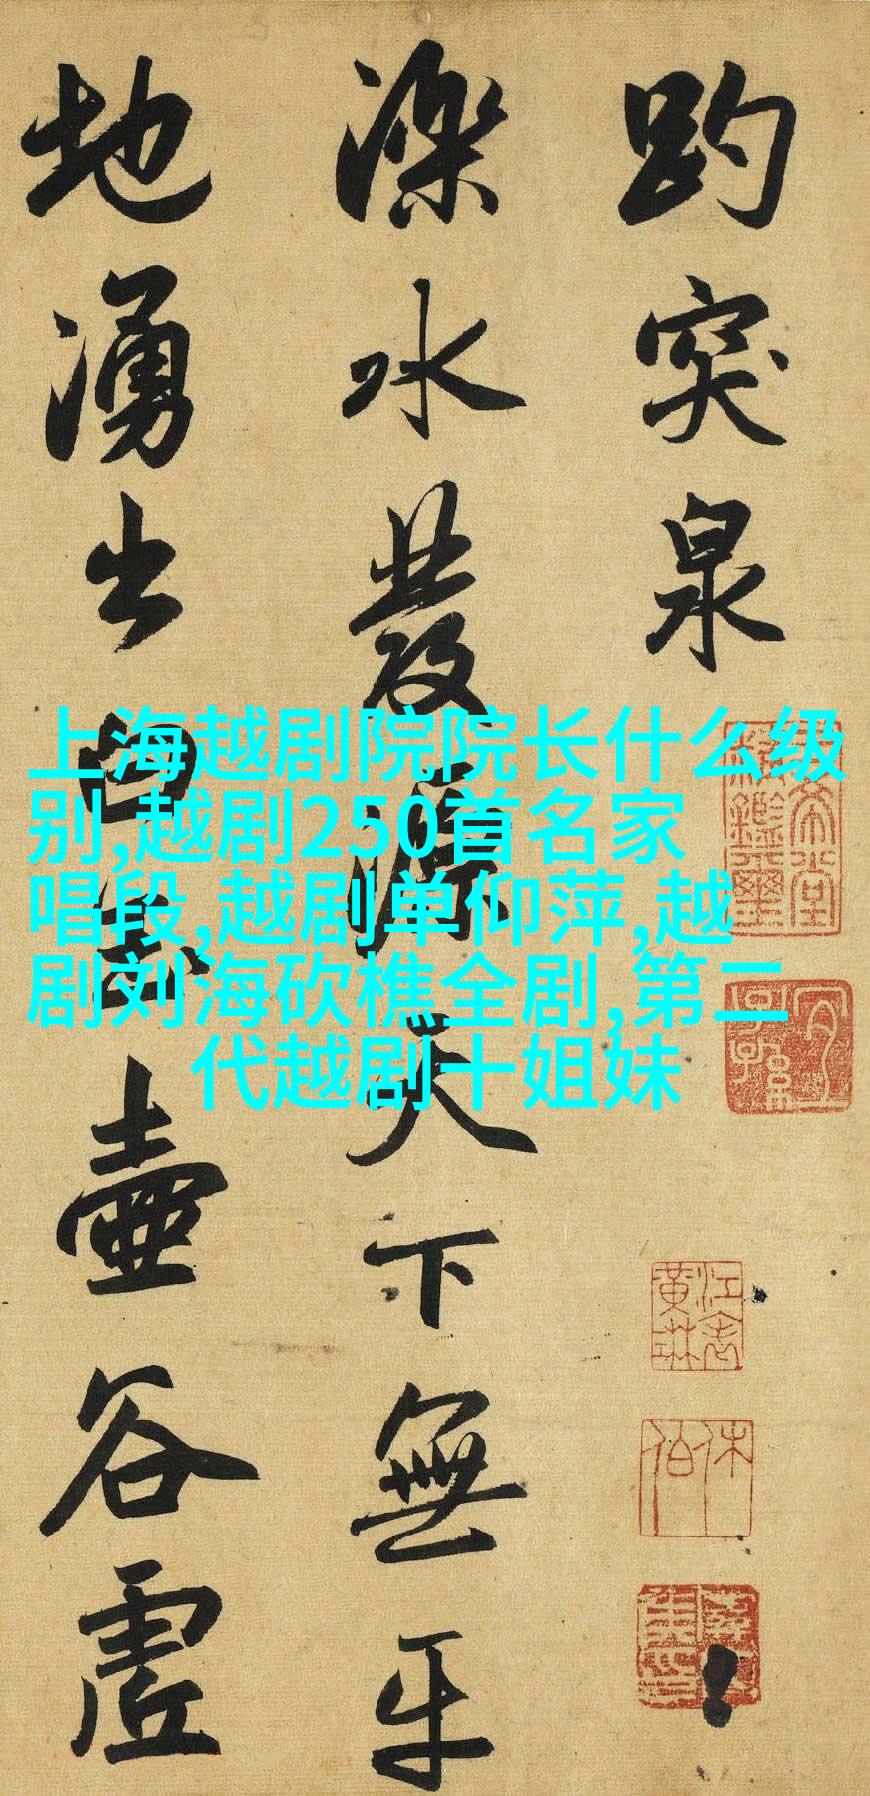 趵突泉
濼水發源天下無平
地湧出白玉壺谷虛
上海越剧院院长什么级
别,越剧250首名家
唱段,越剧单仰萍,越
剧刘海砍樵全剧,第二
代越剧十姐妹